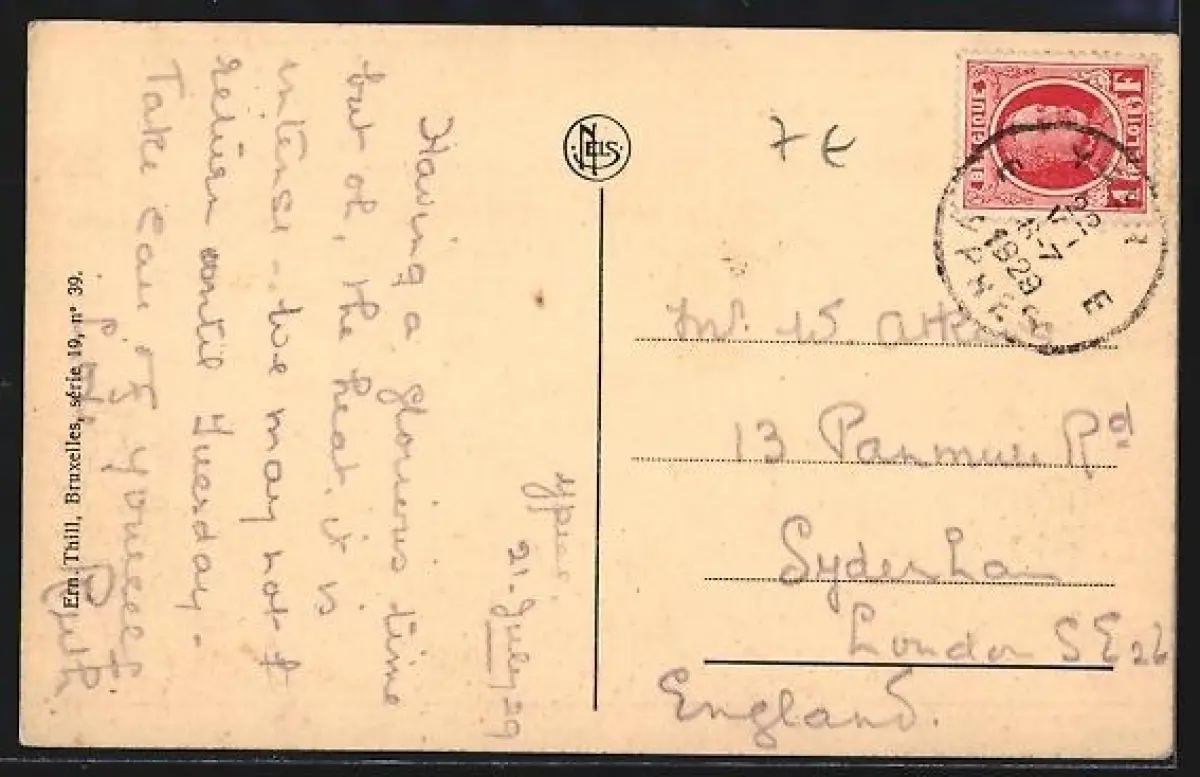 Ypres
21-July-29
Having a glorious time
but oh, the heat, it is
intense - we may not
return until Tuesday -
Take care of yourself
Ruth.
Ern. Thill, Bruxelles, série 19, n° 39.
NELS
7 €
BELGIQUE
1F
BELGIË
1F
YPRES
22
V
1929
E
Mr. W. Atkins
13 Panmure Rd
Sydenham
London SE 26
England.